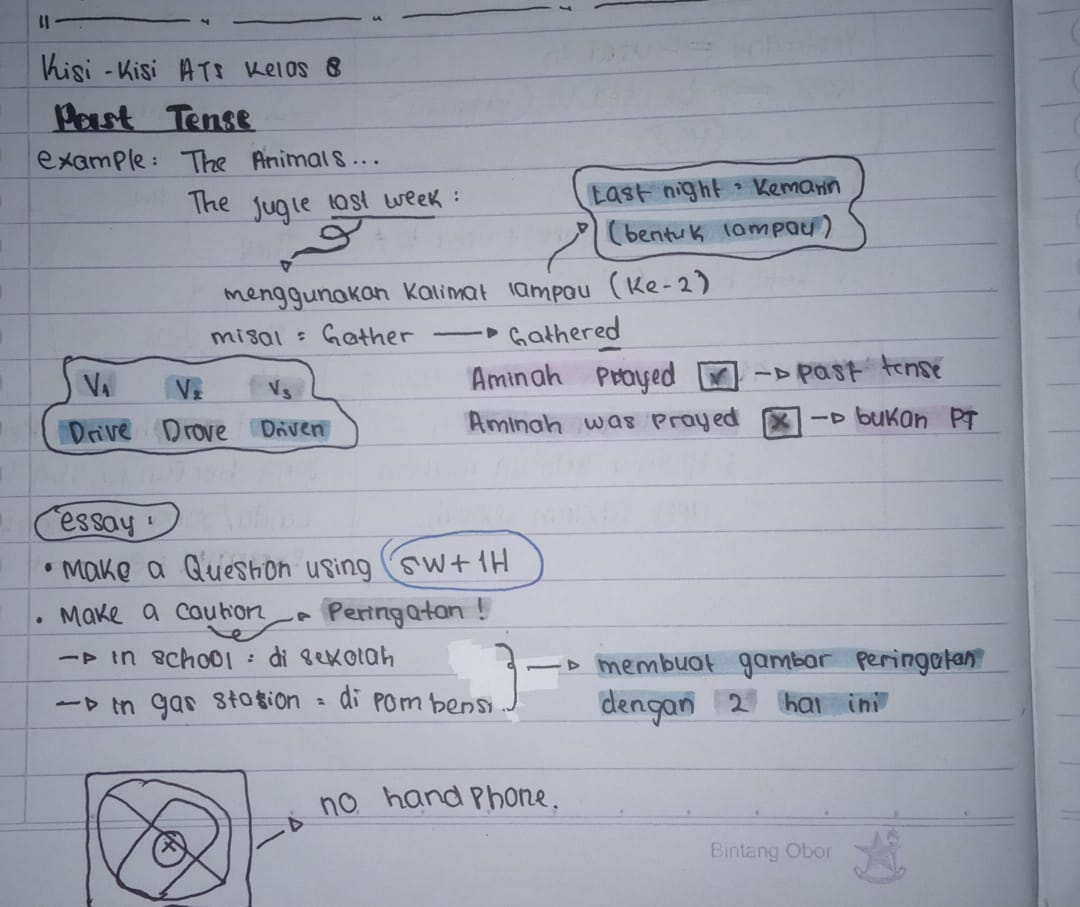 Kisi-Kisi ATS Kelas 8
Past Tense
example: The Animals...
The Jugle last week:
Last night = Kemarin
(bentuk lampau)
menggunakan Kalimat lampau (Ke-2)
misal = Gather → Gathered
V1 V2 V3
Drive Drove Driven
Aminah Prayed ✓ → Past tense
Aminah was Prayed × → bukan PT
essay:
• Make a Question using 5W+1H
• Make a caution → Peringatan!
→ in school = di sekolah
→ in gas station = di Pom bensi.
membuat gambar peringatan
dengan 2 hal ini
no handphone.
Bintang Obor